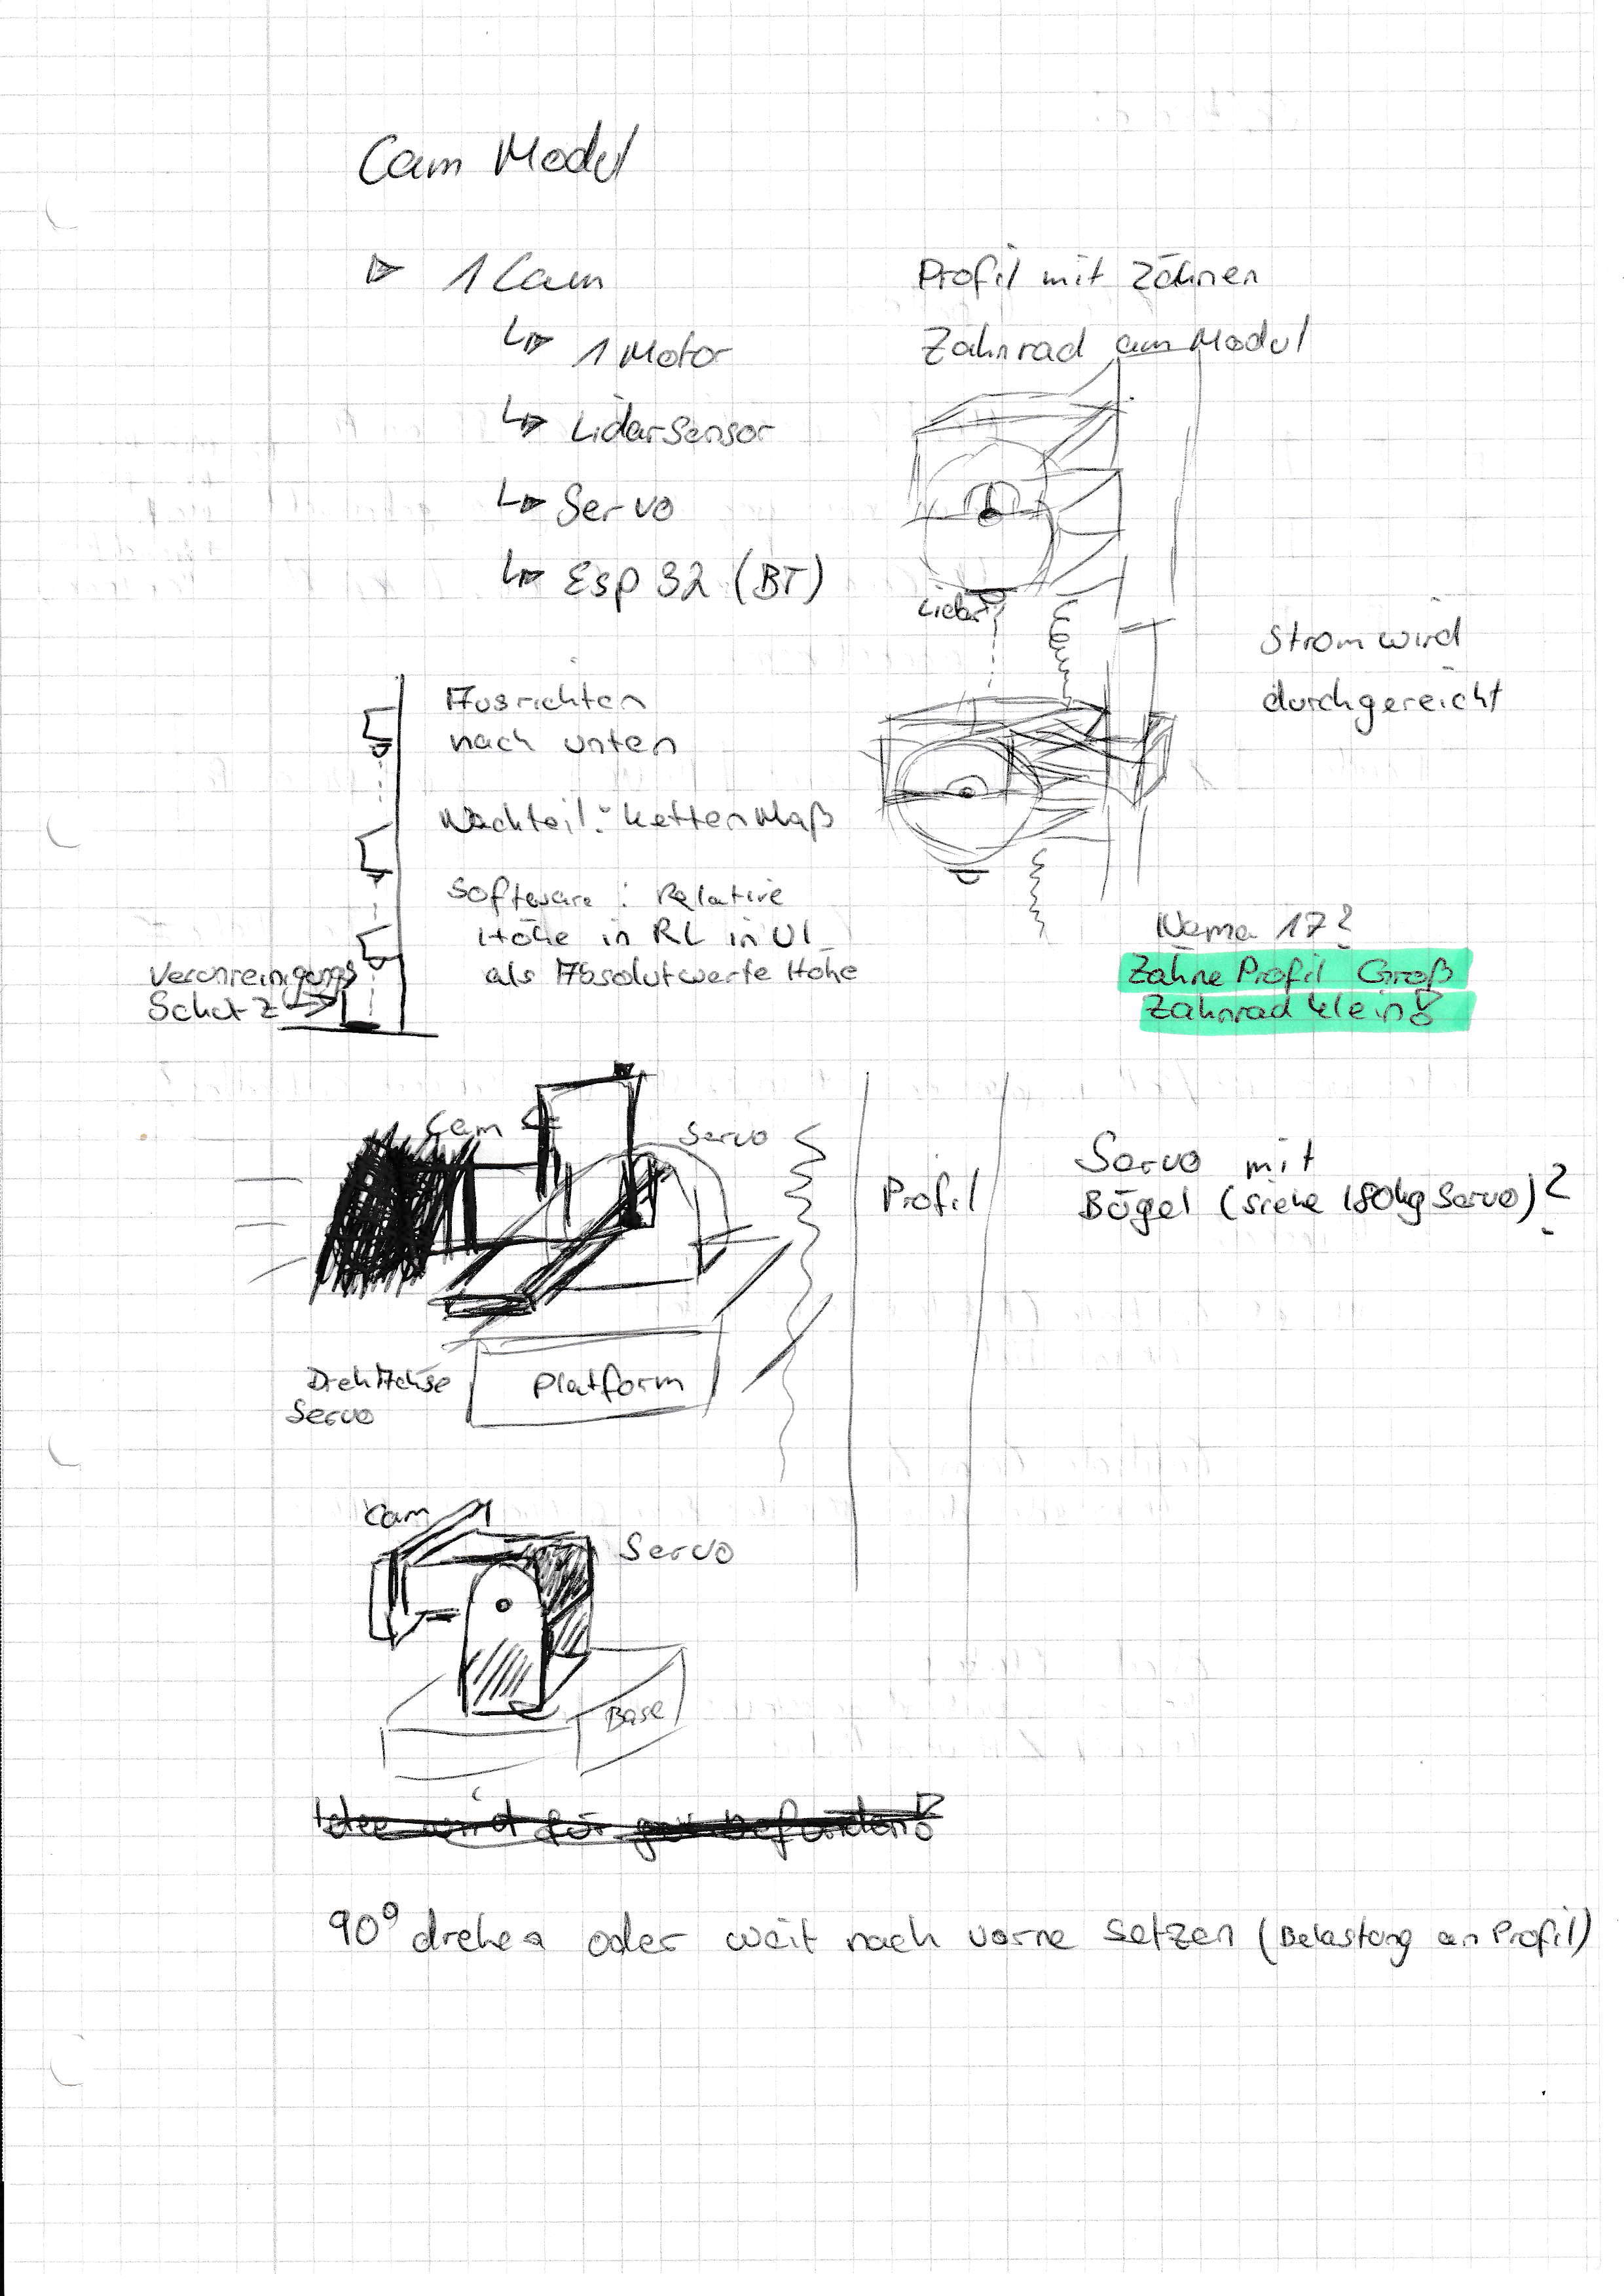 Cam Modul
1 Cam
1 Motor
Lidarsensor
Servo
Esp 32 (BT)
Profil mit Zähnen
Zahnrad am Modul
Lidar
Strom wird
durchgereicht
Ausrichten
nach unten
Nachteil: Kettenmaß
Software: Relative
Höhe in RL in UI
als Absolutwerte Höhe
Verunreinigungs
Schutz
Nema 17?
Zähne Profil Groß
Zahnrad klein!
Cam
Servo
Profil
Servo mit
Bügel (siehe 180kg Servo)?
Platform
DrehAchse
Servo
Cam
Servo
Base
Idee wird für gut befunden!
90° drehen oder weit nach vorne setzen (Belastung an Profil)